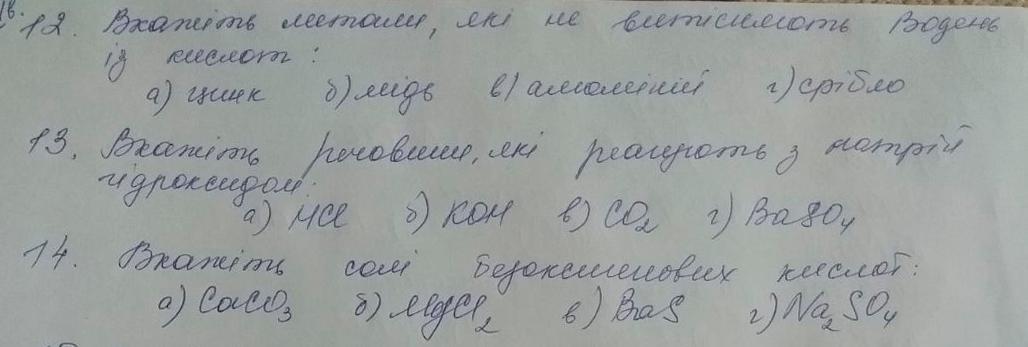 12. Вкажіть метали, які не витісняють Водень
із кислот:
а) цинк б) мідь в) алюміній г) срібло
13. Вкажіть речовини, які реагують з натрій
гідроксидом:
а) HCl б) KOH в) CO₂ г) BaSO₄
14. Вкажіть солі безоксигенових кислот:
а) CaCO₃ б) MgCl₂ в) BaS г) Na₂SO₄